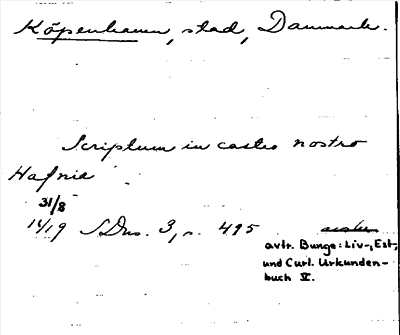 Köpenhamn, stad, Danmark.
Scriptum in castro nostro
Hafnie
31/8
1419 SDns. 3, s. 495
avtr. Bunge: Liv-, Est-,
und Curl. Urkunden-
buch V.